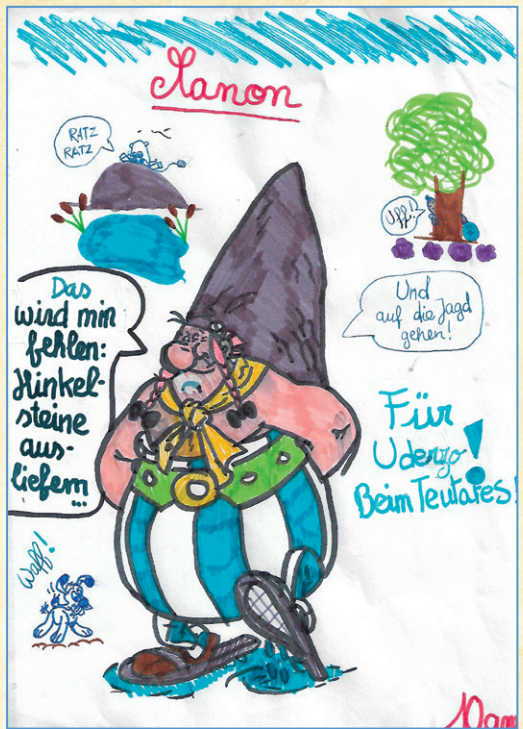 Manon
RATZ
RATZ
Uff!
Das
wird mir
fehlen:
Hinkel-
steine
aus-
liefern
...
Und
auf die Jagd
gehen!
Für
Uderzo!
Beim Teutates!
Waff!